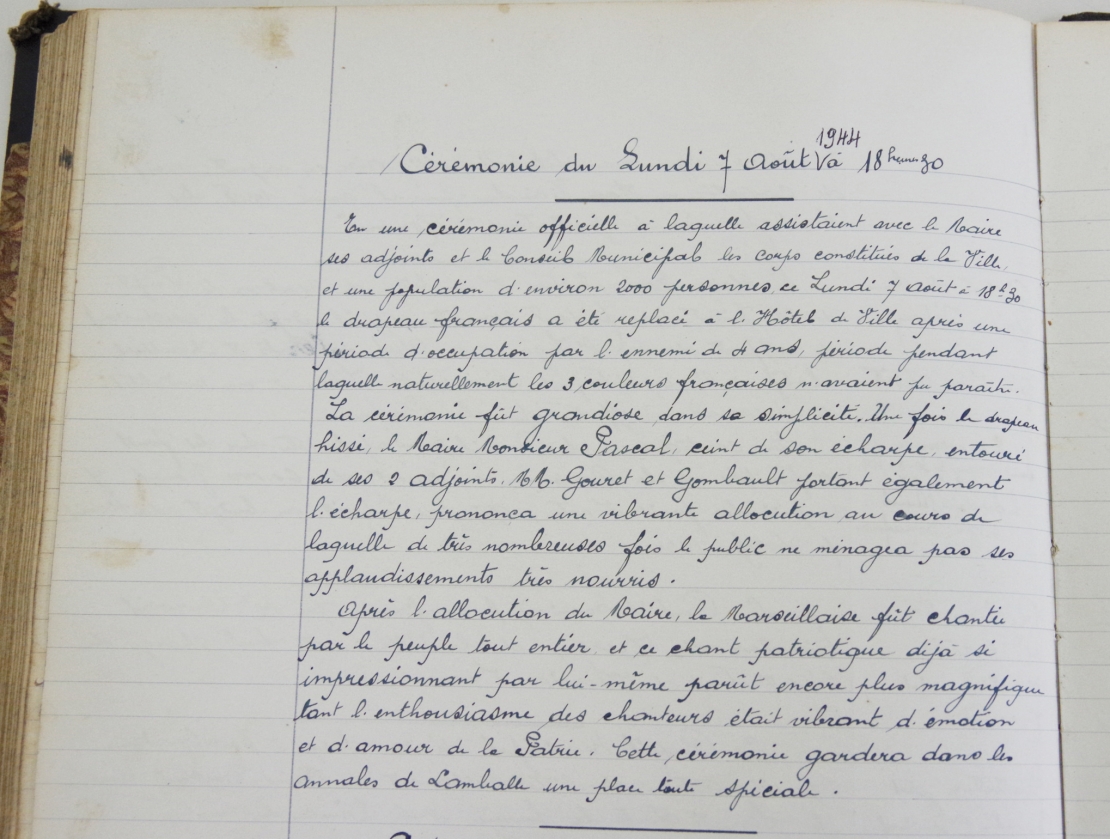 1944
Cérémonie du Lundi 7 Août à 18 heures 30
En une cérémonie officielle à laquelle assistaient avec le Maire
ses adjoints et le Conseil Municipal les corps constitués de la Ville,
et une population d'environ 2000 personnes, ce Lundi 7 Août à 18h30
le drapeau français a été replacé à l'Hôtel de Ville après une
période d'occupation par l'ennemi de 4 ans, période pendant
laquelle naturellement les 3 couleurs françaises n'avaient pu paraître.
La cérémonie fût grandiose dans sa simplicité. Une fois le drapeau
hissé, le Maire Monsieur Pascal, ceint de son écharpe, entouré
de ses 2 adjoints, MM. Gouret et Gombault portant également
l'écharpe, prononça une vibrante allocution au cours de
laquelle de très nombreuses fois le public ne ménagea pas ses
applaudissements très nourris.
Après l'allocution du Maire, la Marseillaise fût chantée
par le peuple tout entier, et ce chant patriotique déjà si
impressionnant par lui-même parût encore plus magnifique
tant l'enthousiasme des chanteurs était vibrant d'émotion
et d'amour de la Patrie. Cette cérémonie gardera dans les
annales de Lamballe une place toute spéciale.